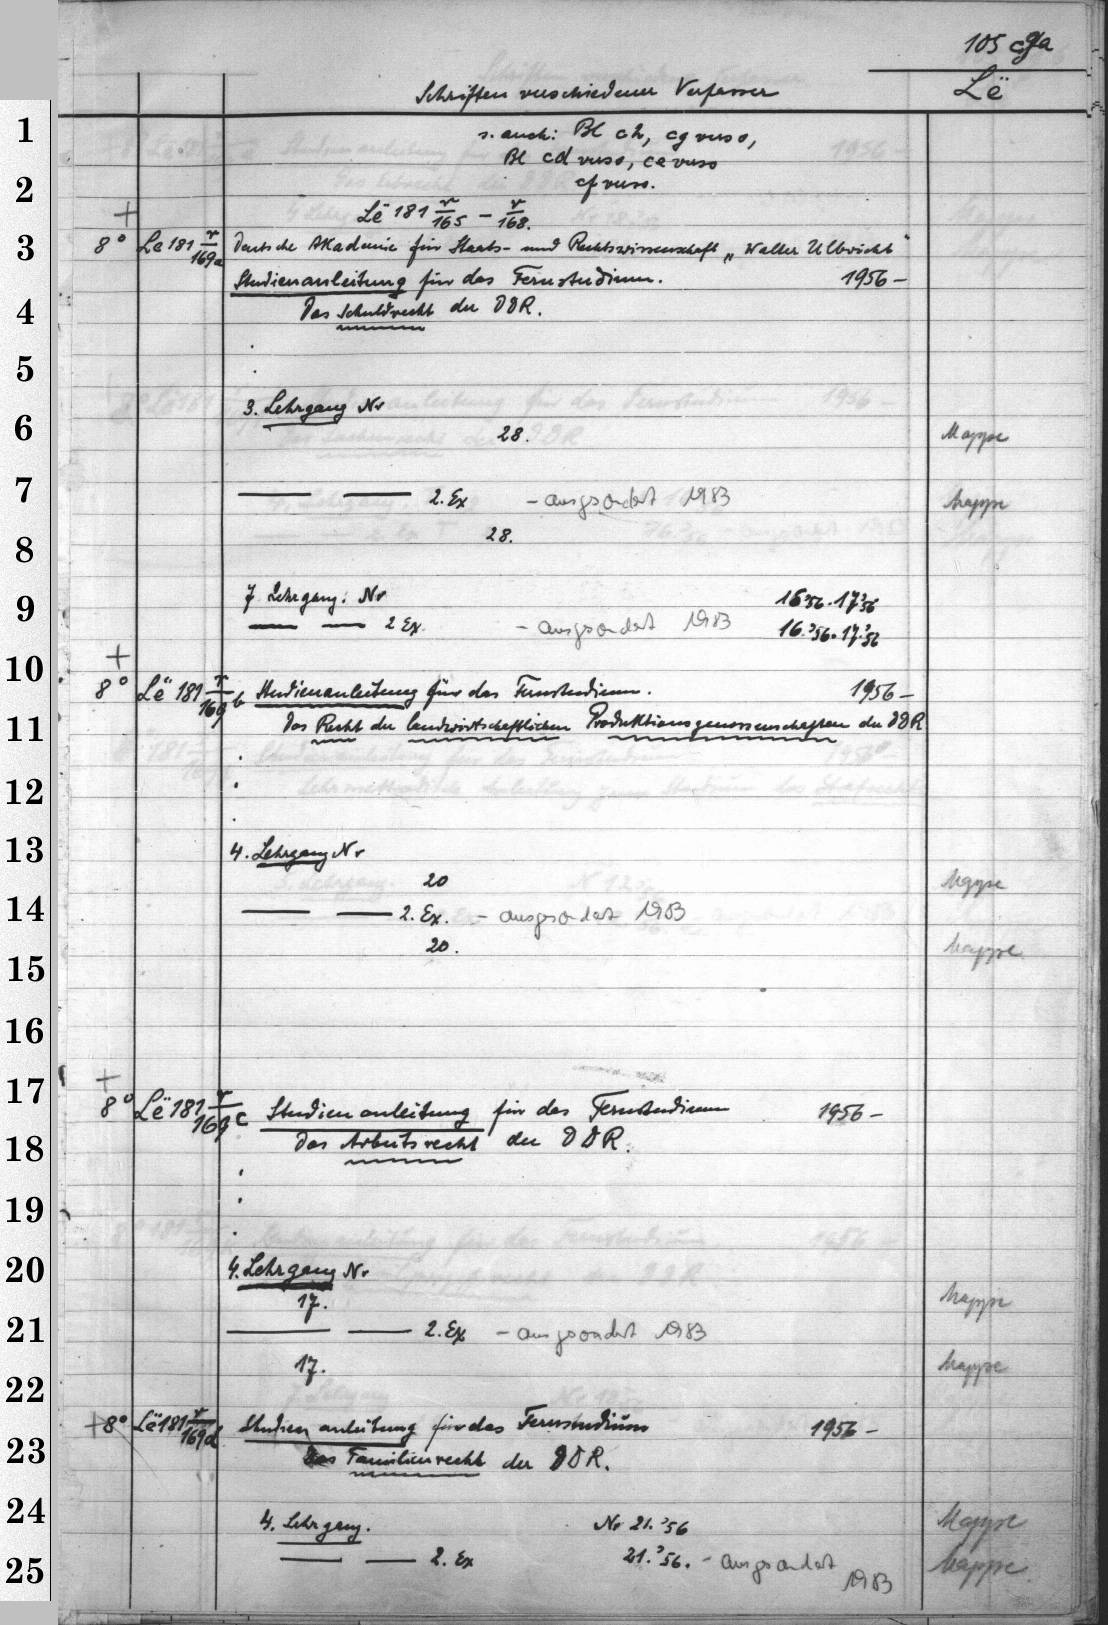 105 cga
Schriften verschiedener Verfasser
Lë
1
s. auch: Bl ch, cg verso,
Bl cd verso, ce verso
2
cf verso.
+
Lë 181 r/165 – r/168.
3
8° Lë 181 r/169a Deutsche Akademie für Staats- und Rechtswissenschaft „Walter Ulbricht"
Studienanleitung für das Fernstudium. 1956 –
4
Das Schuldrecht der DDR.
5
3. Lehrgang Nr
6
28. Mappe
7
— — 2. Ex – ausgesondert 1983 Mappe
8
28.
9
7. Lehrgang. Nr 16'56. 17'56
— — 2 Ex. – ausgesondert 1983 16.'56. 17.'56
10
+
8° Lë 181 r/169 b Studienanleitung für das Fernstudium. 1956 –
11
Das Recht der landwirtschaftlichen Produktionsgenossenschaften der DDR
12
13
4. Lehrgang Nr
20 Mappe
14
— — 2. Ex. – ausgesondert 1983
20. Mappe
15
16
17
+
8° Lë 181 r/169 c Studienanleitung für das Fernstudium 1956 –
18
Das Arbeitsrecht der DDR.
19
20
4. Lehrgang Nr
17. Mappe
21
— — 2. Ex – ausgesondert 1983
17. Mappe
22
+ 8° Lë 181 r/169d Studienanleitung für das Fernstudium 1956 –
23
Das Familienrecht der DDR.
24
4. Lehrgang. Nr 21.'56 Mappe
25
— — 2. Ex 21.'56. – ausgesondert 1983 Mappe